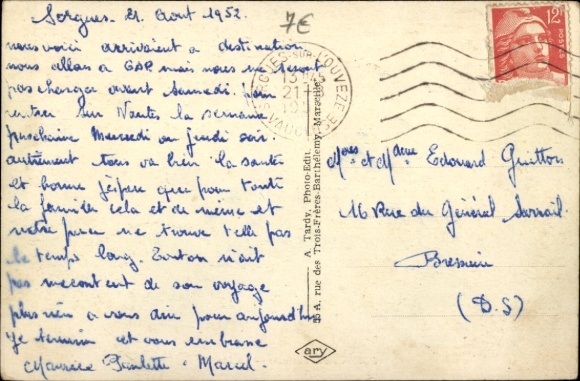 Sorgues. 21. Aout 1952.
7€
nous voici arrivaient a destination
nous allons a GAP mais nous ne seront
pas charger avant Samedi.
rentrer sur Nantes la semaine
prochaine Mercredi ou jeudi soir.
autrement tous va bien la santé
et bonne j'espère que pour toute
la famille cela et de même et
votre ne trouve t'elle pas
le temps long. Tonton n'ait
pas mecontent de son voyage
plus rien a vous dire pour aujourdhui
Je termine et vous embrasse
Maurice Paulette - Marcel.
SORGUES-SUR-L'OUVEZE
13H45
21-8
VAUCLUSE
A. Tardy, Photo-Edit.
A, rue des Trois-Frères-Barthélemy, Marseille
ary
12F
POSTES
Mr et Mme Edouard Guitton
16 Rue du Général Sarrail
Bressuire
(D.S)